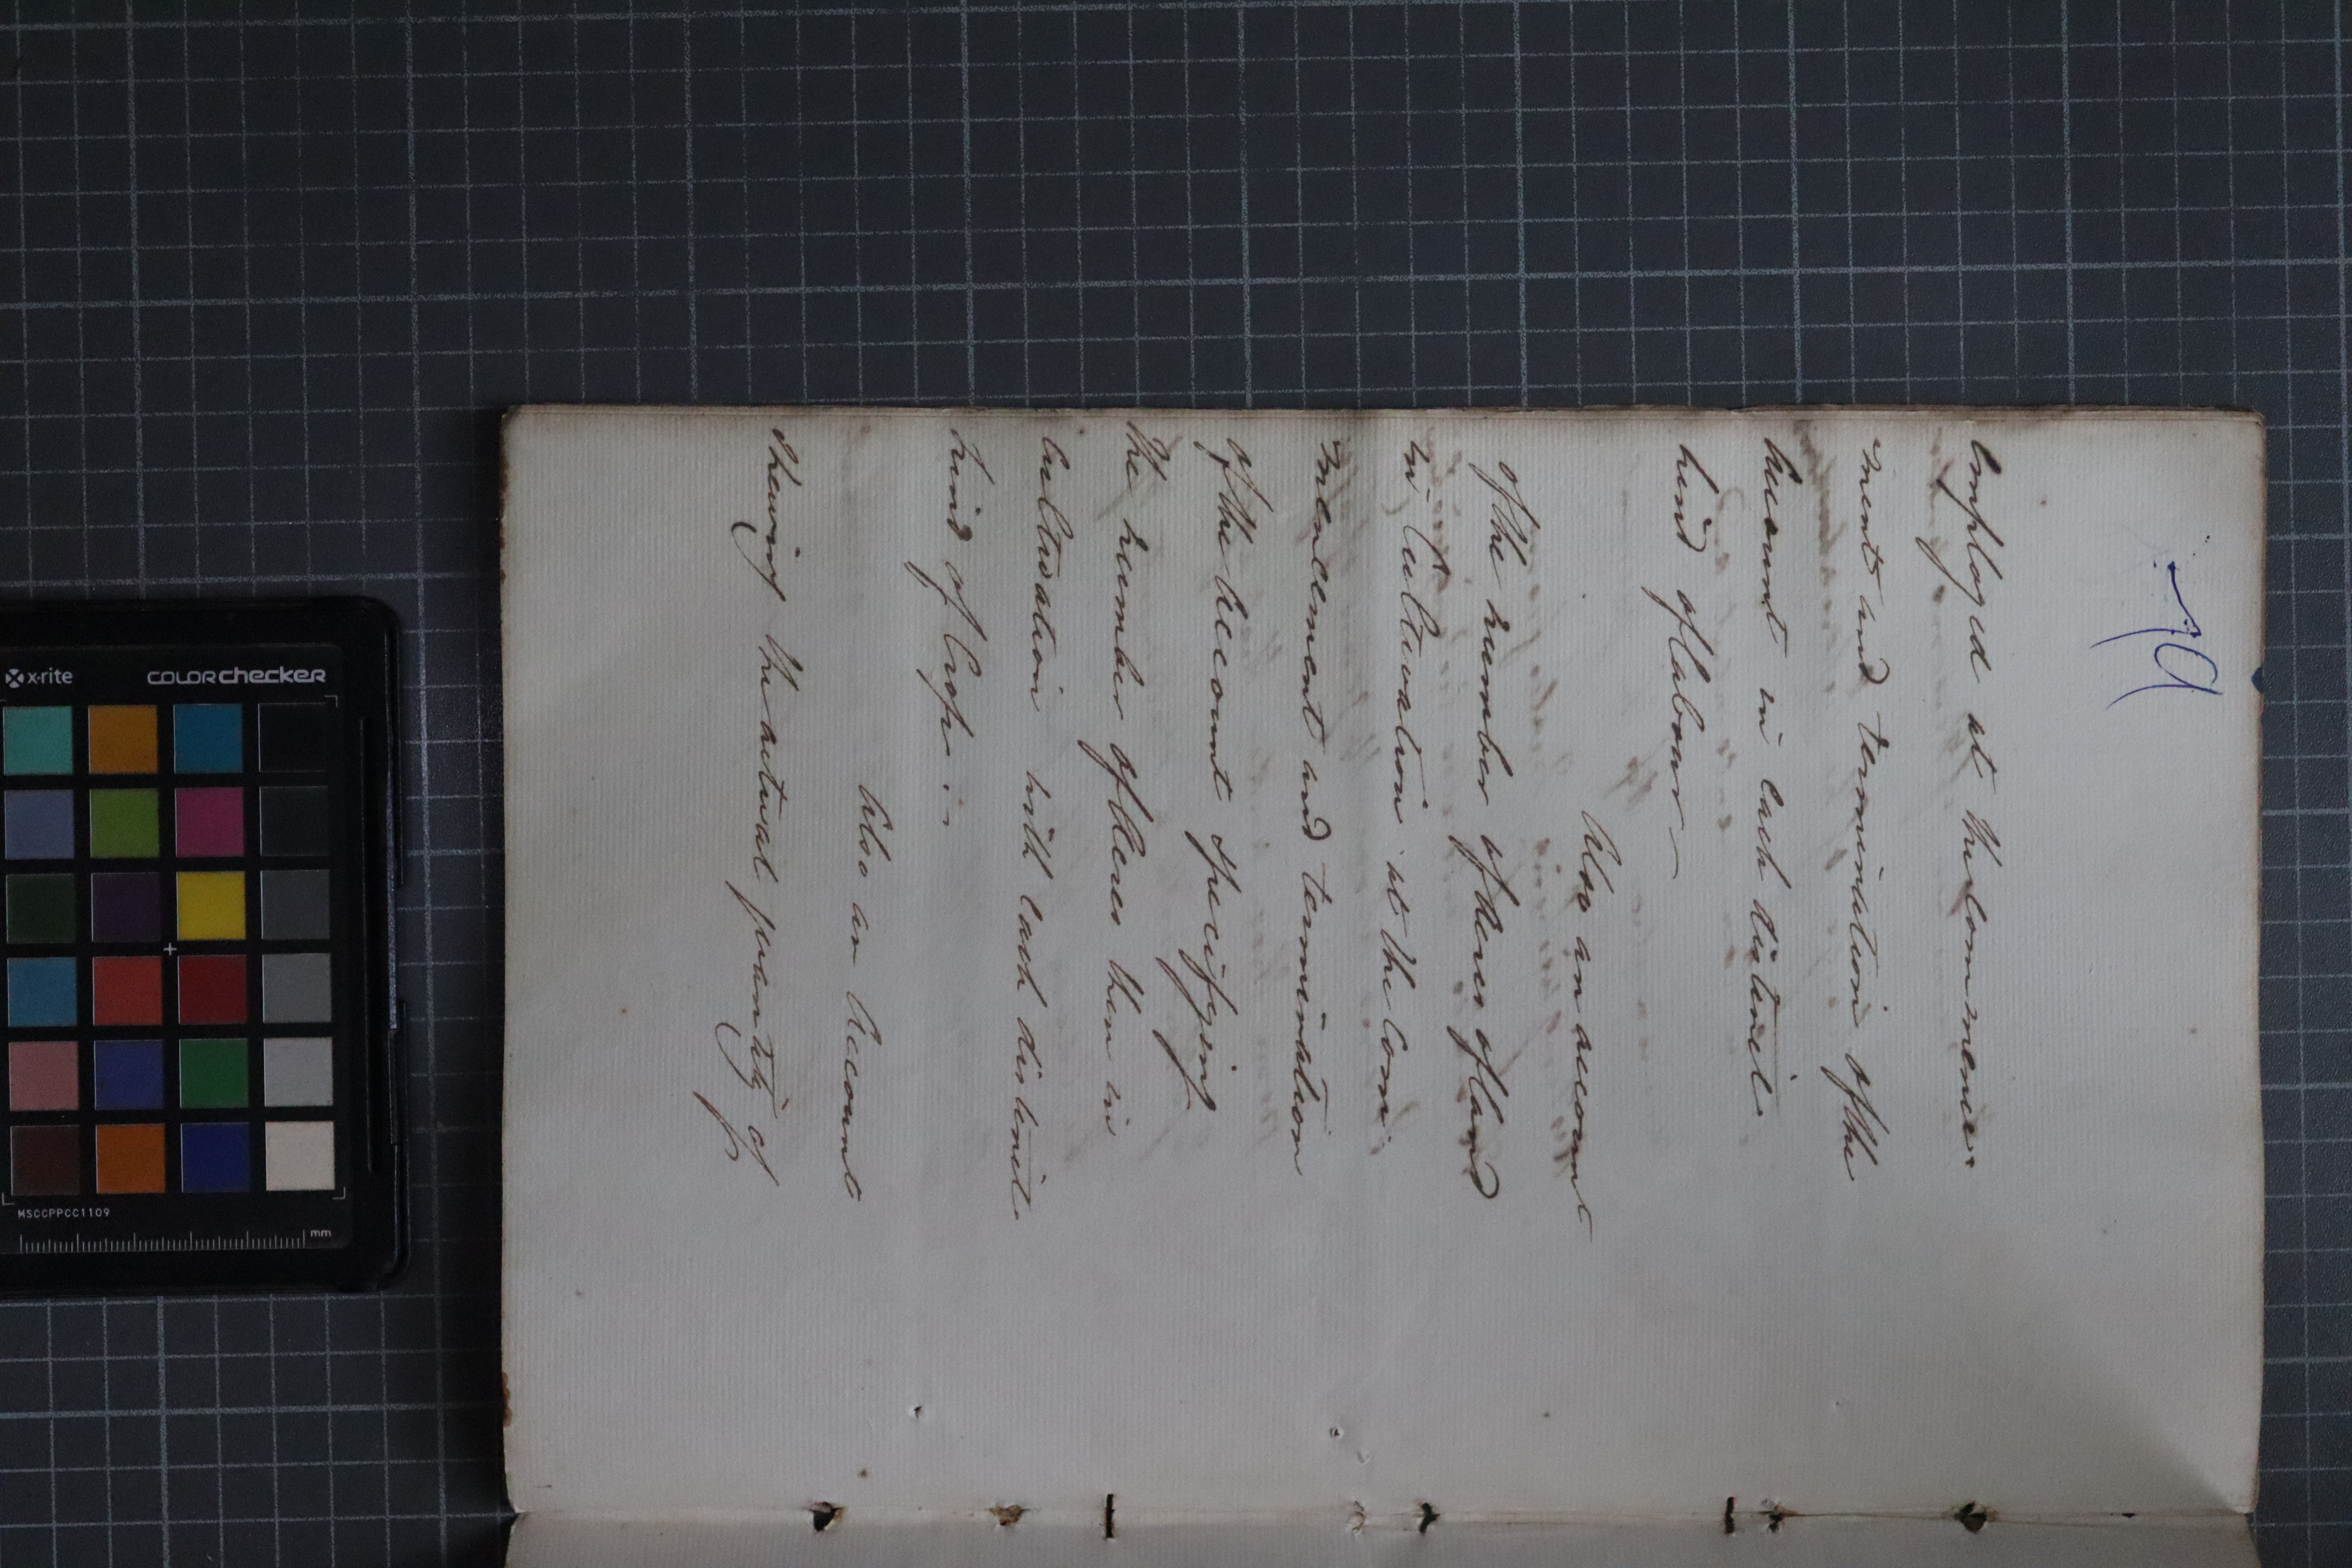 19
employed at the Commence-
ment and termination of the
Account in each distinct
kind of labour—
Also an account
of the number of Acres of land
in Cultivation at the Com-
mencement and termination
of the Account specifying
the number of Acres then in
Cultivation with each distinct
kind of Crop.
Also an Account
shewing the actual quantity of
x-rite colorchecker
MSCCPPCC1109
mm